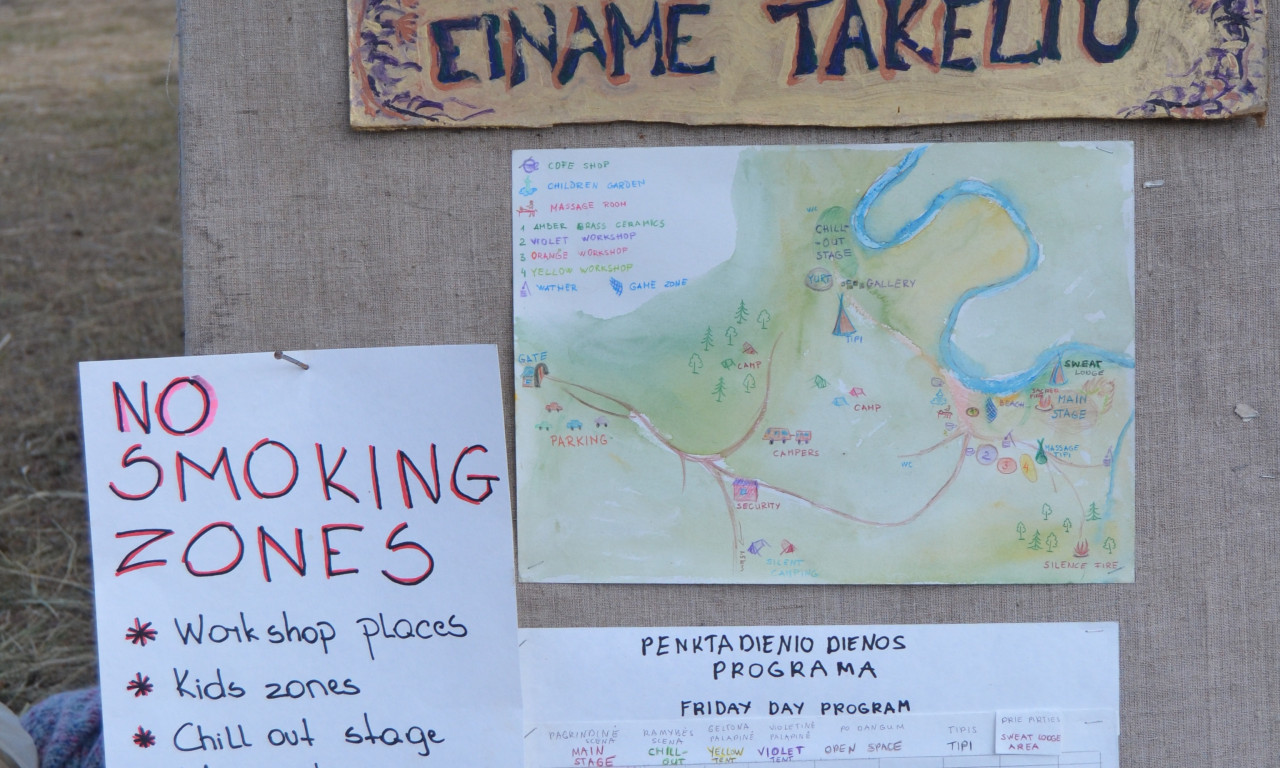 EINAME TAKELIU
COFE SHOP
CHILDREN GARDEN
MASSAGE ROOM
1 AMBER GRASS CERAMICS
2 VIOLET WORKSHOP
3 ORANGE WORKSHOP
4 YELLOW WORKSHOP
WATHER
GAME ZONE
WC
CHILL-
-OUT
STAGE
YURT
GALLERY
TIPI
GATE
CAMP
PARKING
CAMP
CAMPERS
SECURITY
SILENT
CAMPING
WC
BEACH
SWEAT
LODGE
SACRED
FIRE
MAIN
STAGE
2
3
4
MASSAGE
TIPI
SILENCE FIRE
NO
SMOKING
ZONES
* Workshop places
* Kids zones
* Chill out stage
PENKTADIENIO DIENOS
PROGRAMA
FRIDAY DAY PROGRAM
PAGRINDINĖ
SCENA
RAMYBĖS
SCENA
GELTONA
PALAPINĖ
VIOLETINĖ
PALAPINĖ
PO DANGUM
TIPIS
PRIE PIRTIES
MAIN
STAGE
CHILL-
OUT
YELLOW
TENT
VIOLET
TENT
OPEN SPACE
TIPI
SWEAT LODGE
AREA